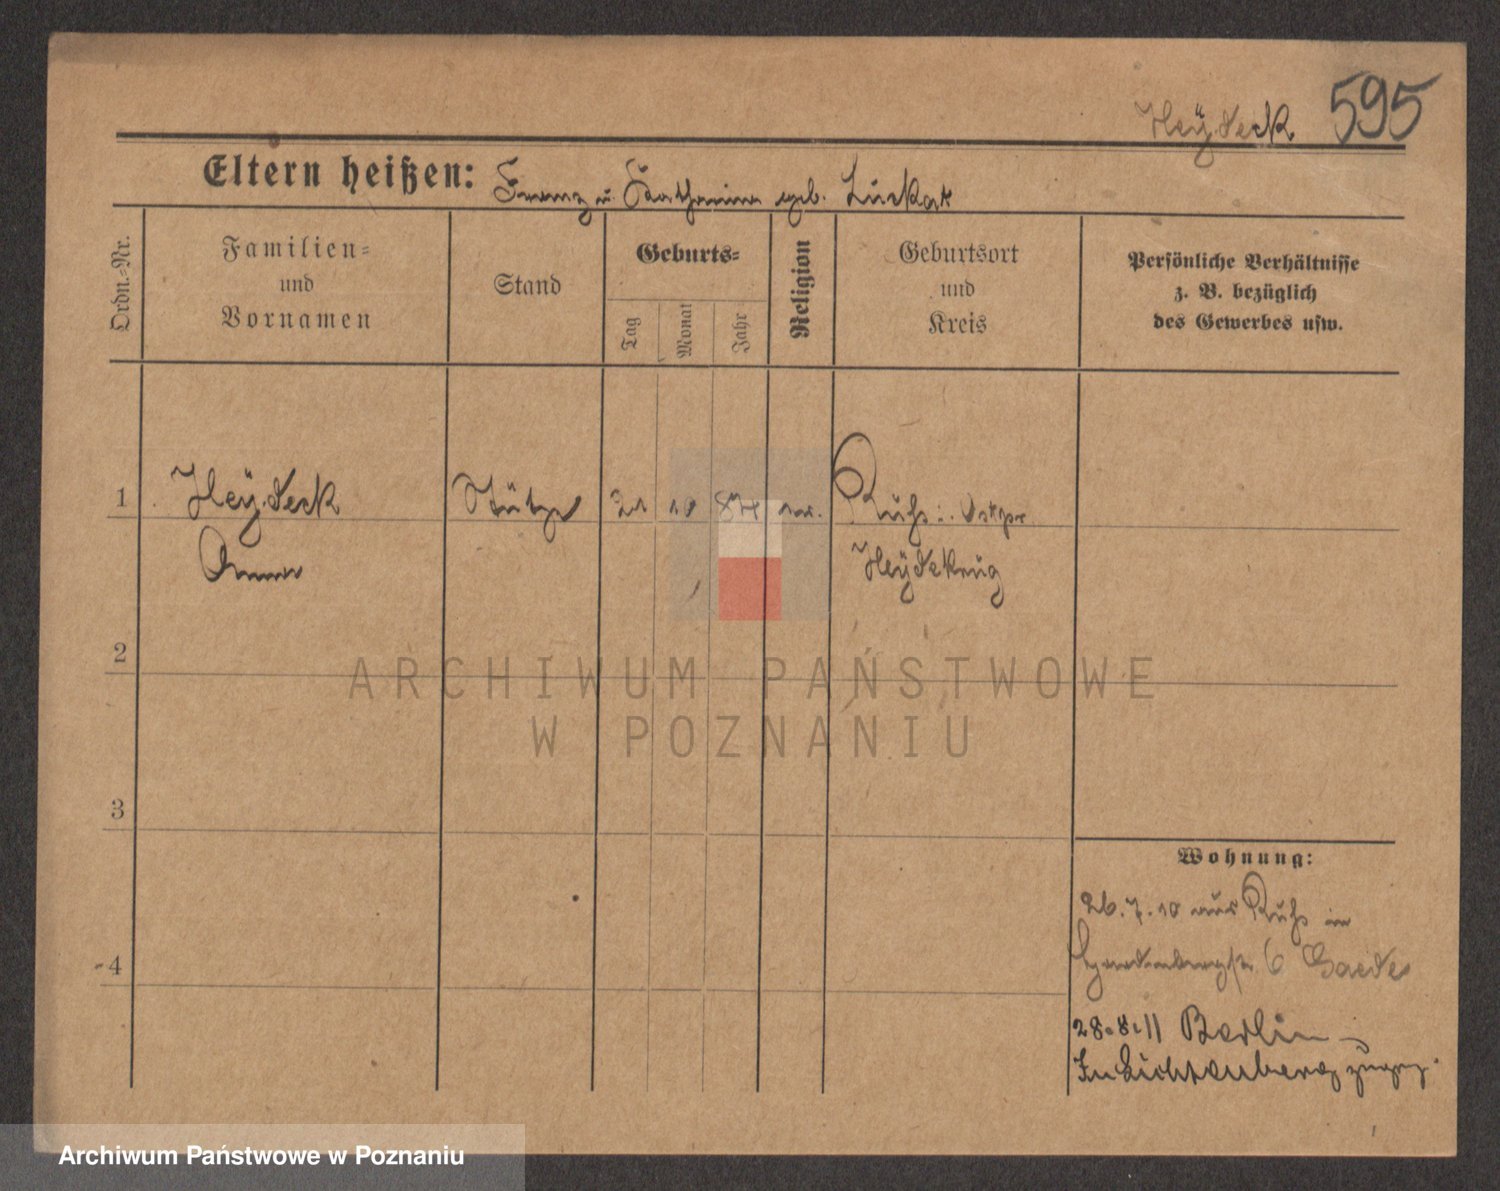 Heÿdeck 595
Eltern heißen: Franz u. Katharina geb. Luckat
Ordn.-Nr.
Familien-
und
Vornamen
Stand
Geburts-
Tag
Monat
Jahr
Religion
Geburtsort
und
Kreis
Persönliche Verhältnisse
z. B. bezüglich
des Gewerbes usw.
1 Heÿdeck Stütze 21 10 ev. Ruhs Ostpr
Anna Heÿdekrug
2
3
4
Wohnung:
26.7.10 aus Ruhs in
6 Gaede
28.8.11 Berlin –
In Lichtenberg zugez.
ARCHIWUM PAŃSTWOWE
W POZNANIU
Archiwum Państwowe w Poznaniu